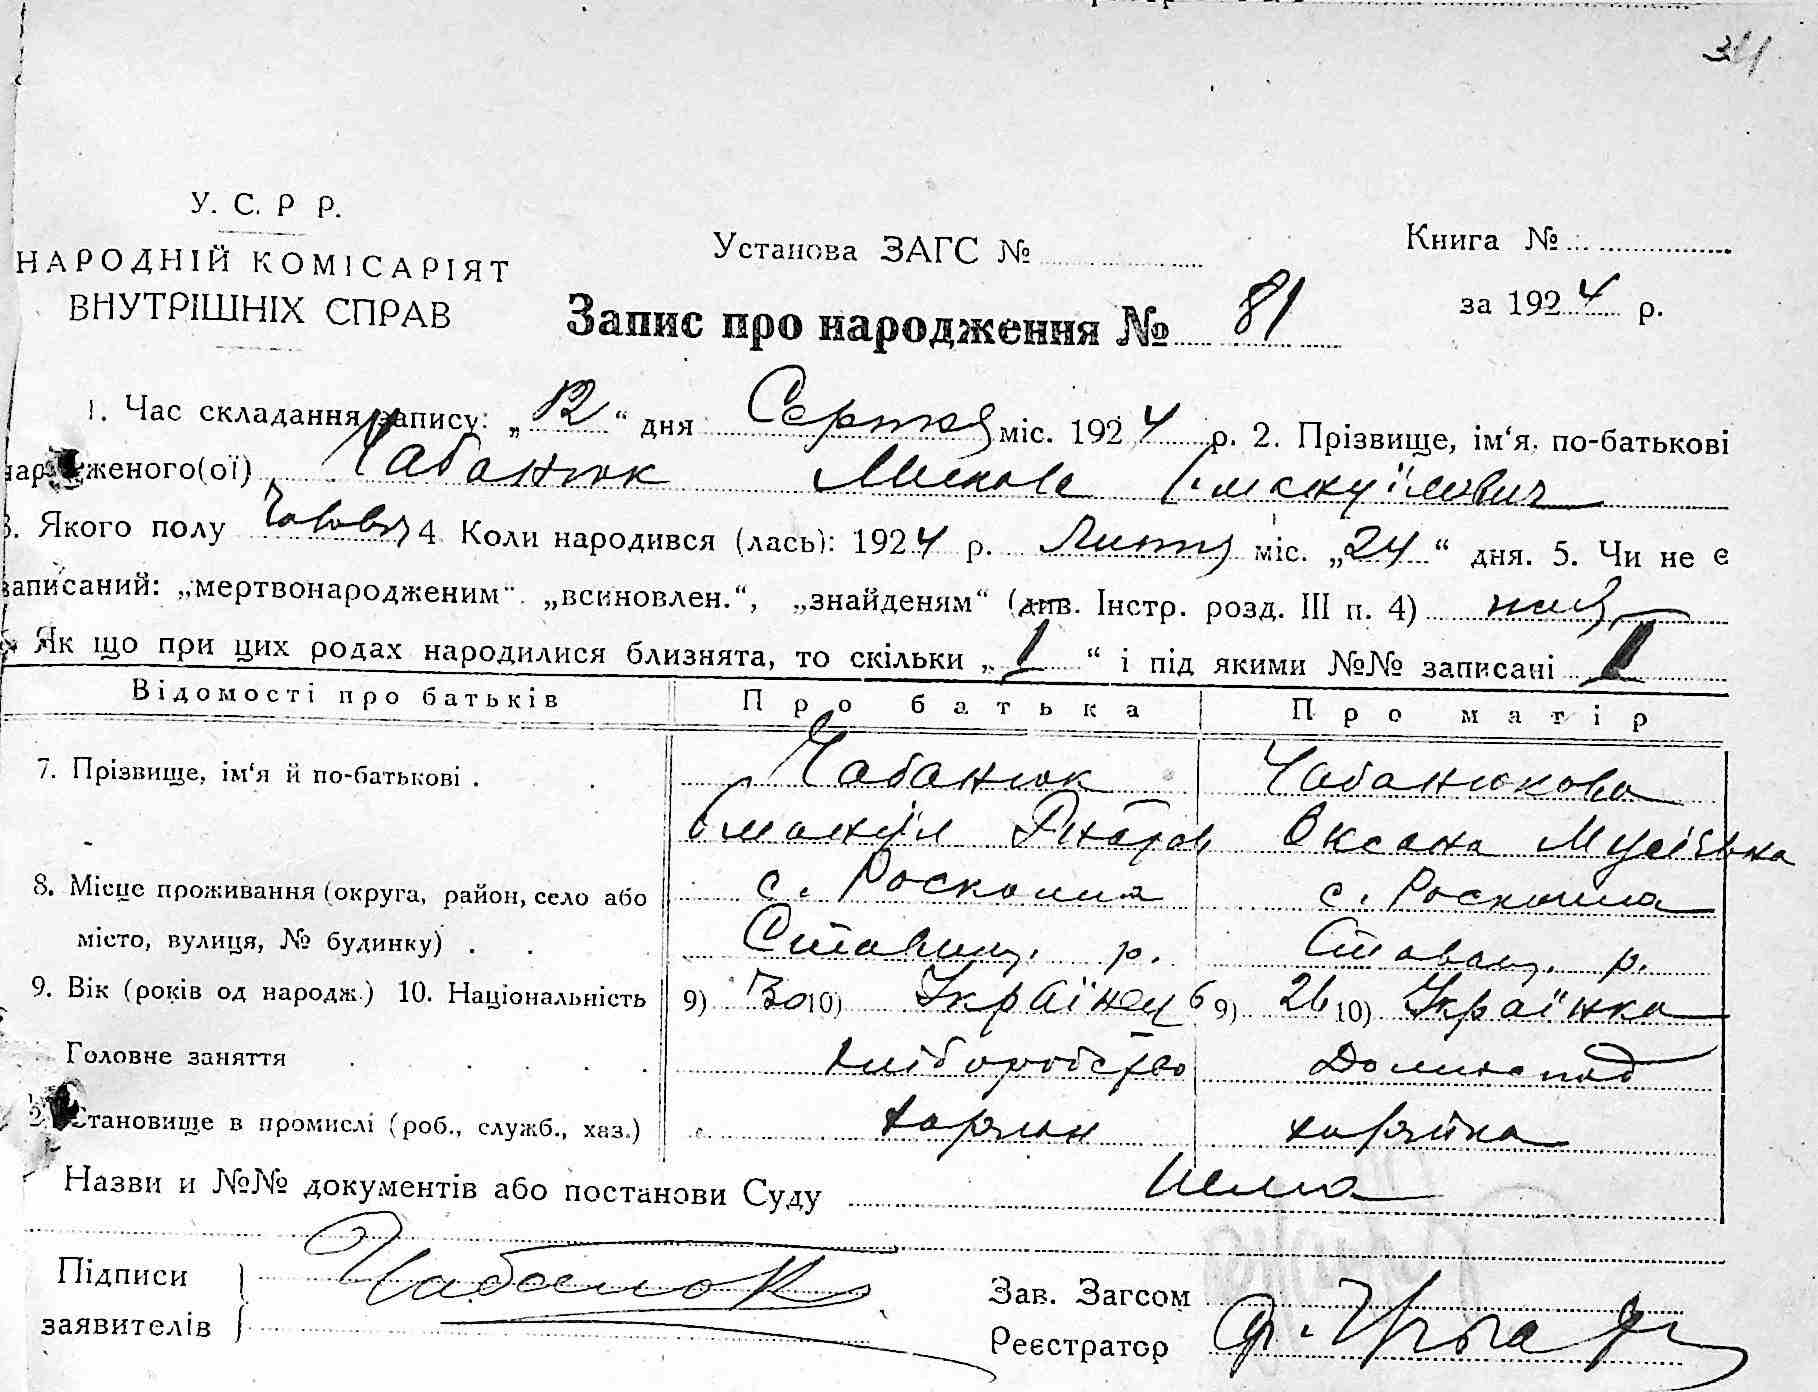 341
У. С. Р Р.
НАРОДНІЙ КОМІСАРІЯТ
ВНУТРІШНІХ СПРАВ
Установа ЗАГС №
Книга №
за 1924 р.
Запис про народження № 81
1. Час складання запису: „12“ дня Серпня міс. 1924 р. 2. Прізвище, ім‘я, по-батькові
нар женого(ої) Чабанюк Микола Емануїлович
3. Якого полу 4 Коли народився (лась): 1924 р. Липня міс. „24“ дня. 5. Чи не є
записаний: „мертвонародженим“. „всиновлен.“, „знайденям“ (див. Інстр. розд. III п. 4)
Як що при цих родах народилися близнята, то скільки „1“ і під якими №№ записані 1
Відомості про батьків
Про батька
Про матір
7. Прізвище, ім‘я й по-батькові .
Чабанюк
Чабанюкова
Емануїл
Оксана Мусіївна
8. Місце проживання (округа, район, село або
с. Роскошна
с. Роскошна
місто, вулиця, № будинку) .
Ставищ. р.
Ставищ. р.
9. Вік (років од народж.) 10. Національність
9) 30 10) Українець
9) 26 10) Українка
Головне заняття
Хліборобство
Домогоспод
Становище в промислі (роб., служб., хаз.)
хазяїн
хазяйка
Назви и №№ документів або постанови Суду
Нема
Підписи
заявителів
Чабанюк
Зав. Загсом
Реєстратор